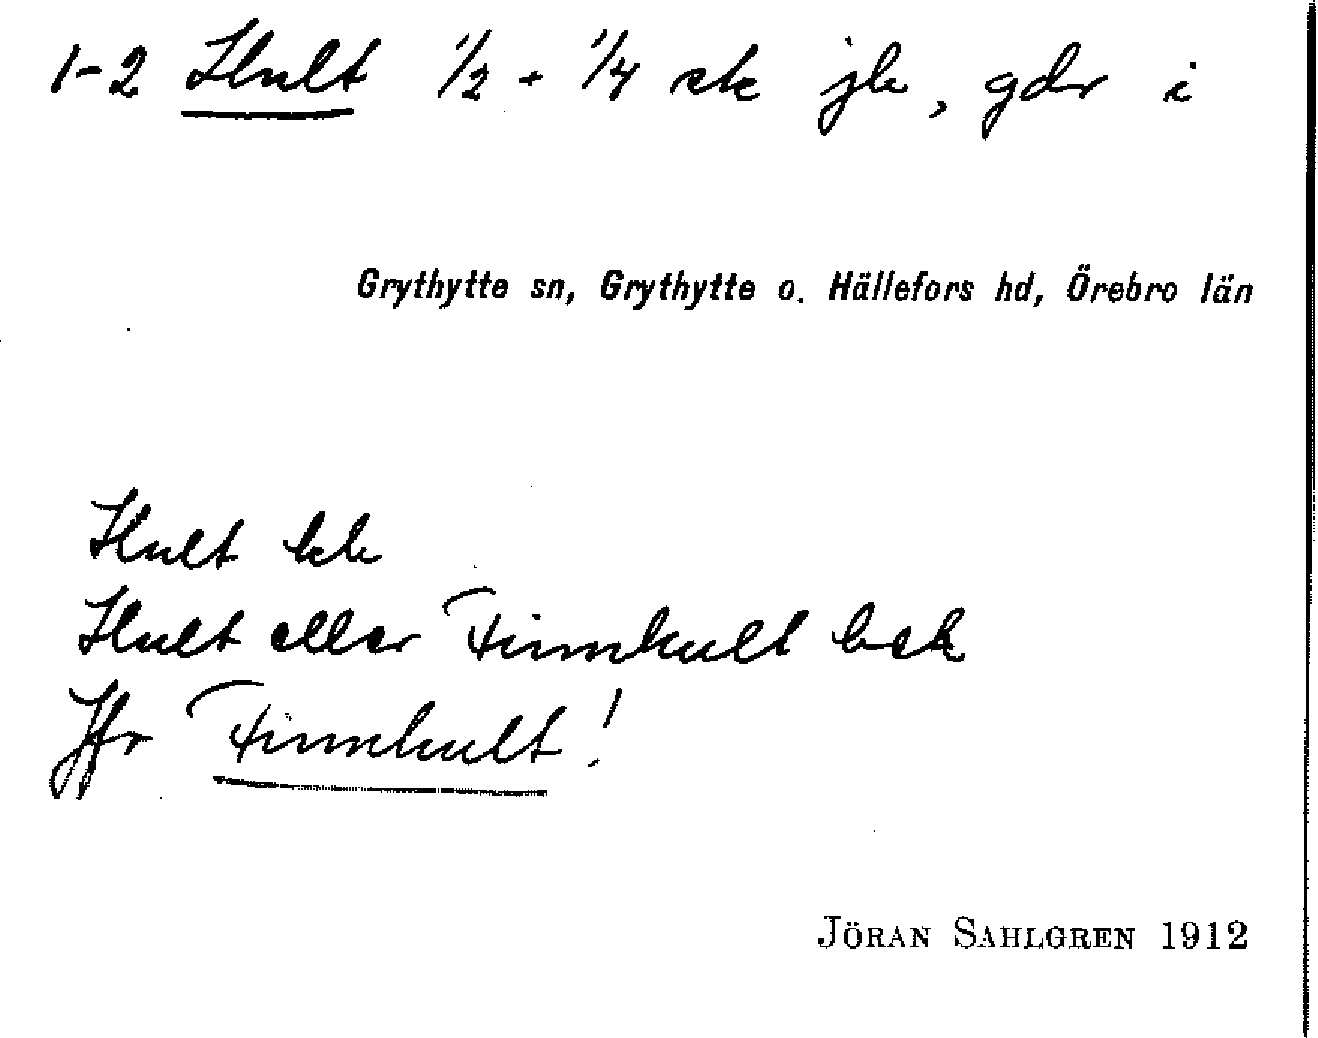 1-2 Hult 1/2 + 1/4 sk jk, gdr i
Grythytte sn, Grythytte o. Hällefors hd, Örebro län
Hult
Hult eller Finnhult
Jfr Finnhult!
JÖRAN SAHLGREN 1912